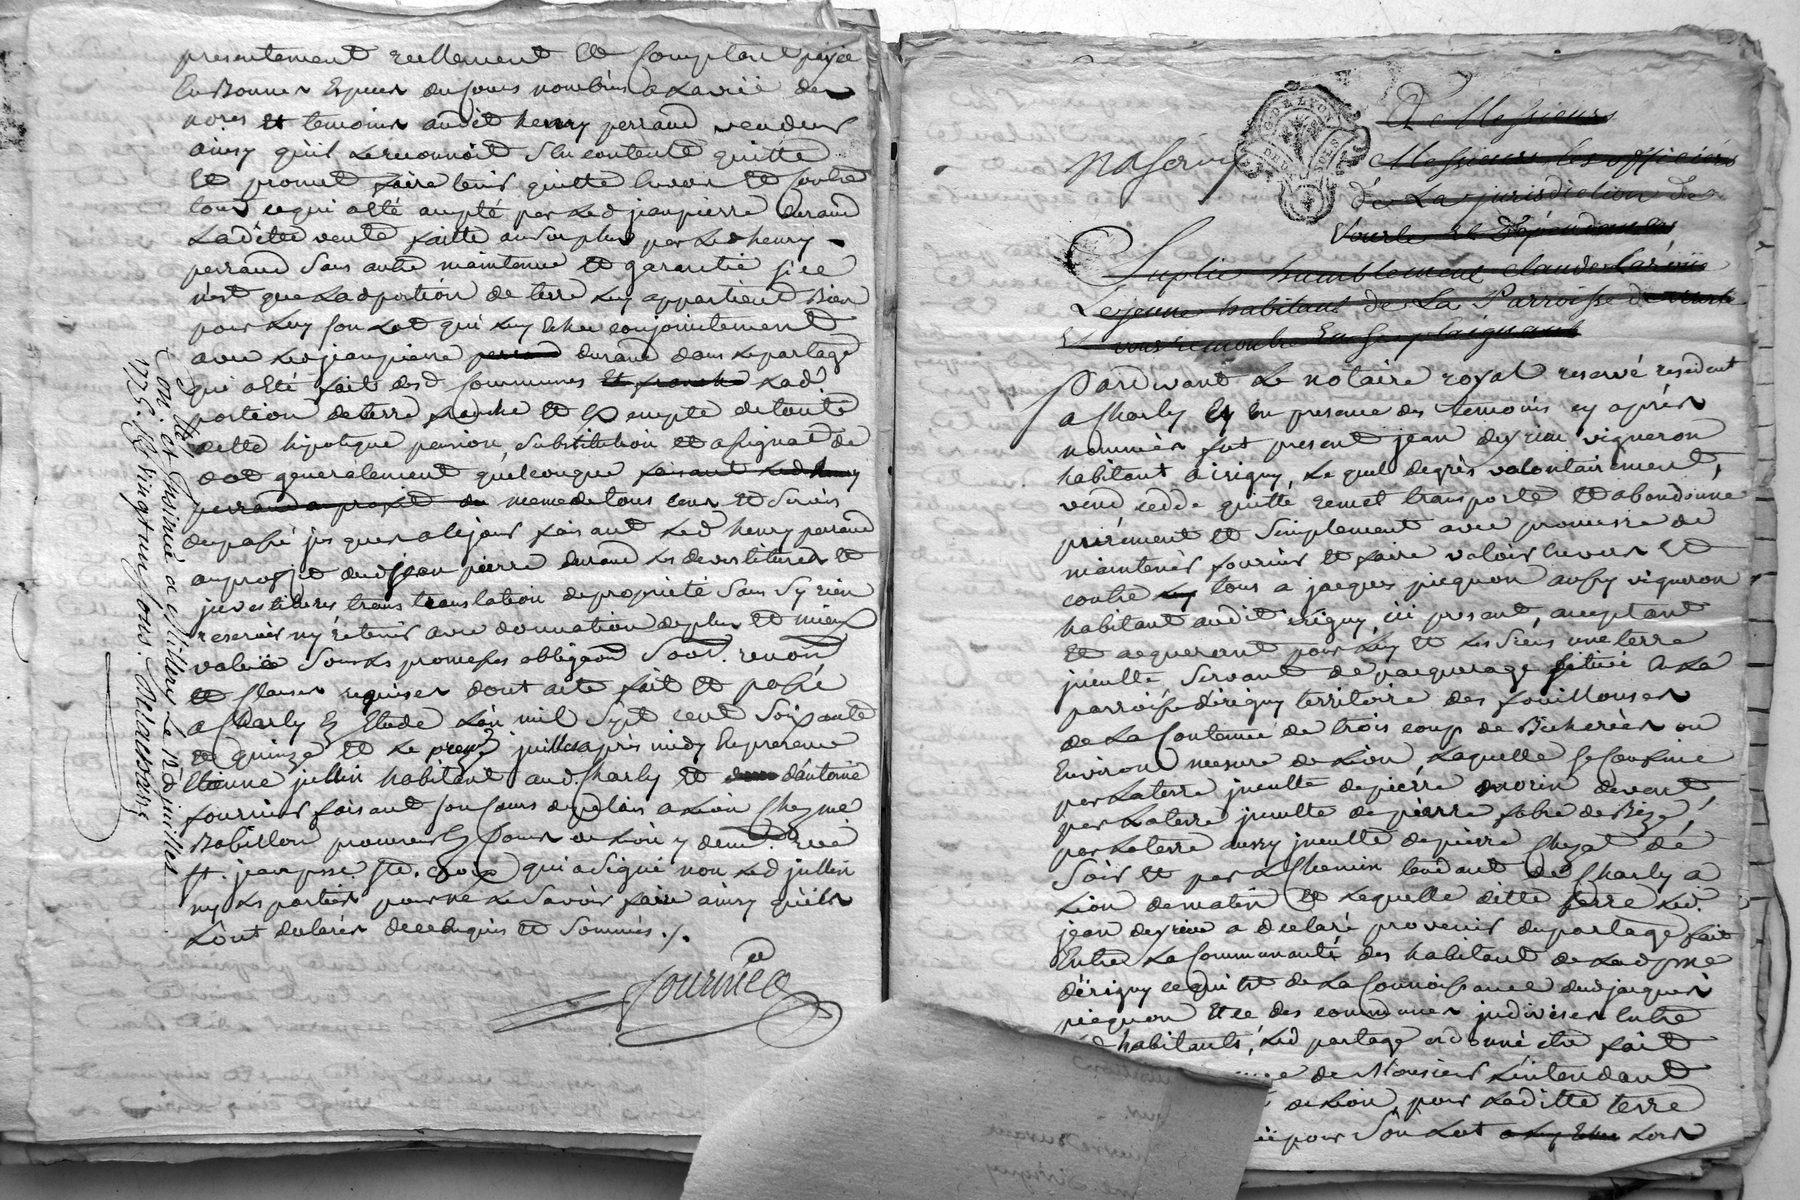 presentement reellement et Comptant payée
En Bonnes Especes du Cours nombrées a la vüe des
nores et temoins audit henry perraud vendeur
ainsy quil le reconnoit S'en contente quitte
et promet faire tenir quitte Envers et Contre
tous ce qui a eté accepté par led jean pierre durand
Ladite vente faitte au Surplus par led henry
perraud Sans autre maintenue et garantie Si ce
n'est que lad portion de terre luy appartient Bien
pour luy son Lot qui luy Echu conjointement
avec led jean pierre durand dans le partage
qui a eté fait desd Communes et franche lad.
portion de terre franche et Exempte de toute
dette hipoteque pension, Substitution et assignat de
dot generalement quelconque faisant led henry
perraud a profit du meme de tous cens et Servis
du passé jusques a ce jour faisant led henry perraud
au profit dud jean pierre durand les devestitures et
jnvestitures trans translation de propriété Sans Sy rien
reserver ny retenir avec donnation de plus et mieux
value Sous les promesses obligeons Soûs. renon
et Clauses requises dont acte fait et passé
a Charly En Etude L'an mil Sept cent Soixante
et quinze et Le prem.r juillet après midy En presence
Etienne jullin habitant aud Charly et d'antoine
fournier faisant Son Cours de palais a Lion Chez me
Babillon procureur Es Cours de Lion y demt. rüe
St. jean psse Ste. Croix qui a Signé non led jullin
ny les parties pour ne le Savoir faire ainsy qu'ils
L'ont declarés de ce enquis et Sommés ./.
fournier
Con.llé et Insinué a Millery Le 12 juillet
1775. R. vingt neuf sous.
De Messieurs
Messieurs les officiers
de La jurisdiction de
Vourle et Dépendances
Suplie humblement claude
Lejeune habitant de La Parroisse de vourle
Et vous remontre En Se plaignant
Pardevant Le notaire royal reservé residant
a Charly Et En presence des temoins cy après
nommés fut present jean deyrieu vigneron
habitant a irigny, lequel de grès volontairement,
vend cedde quitte remet transporte et abondonne
purement et Simplement avec promesse de
maintenir fournir et faire valoir Envers Et
contre tous a jacques picquon aussy vigneron
habitant audit irigny, ici présant, acceptant
Et acquerant pour luy et les Siens une terre
jnculte Servant de pacquerage Située a La
parroisse d'irigny territoire des fouillouses
de La Contenue de trois coup de Bicherées ou
Environ mesure de Lion, Laquelle Se Confine
par la terre jnculte de pierre morin devent,
par la terre jnculte de pierre fabre de Bize,
par la terre aussy jnculte de pierre Chazat de
Soir et par le Chemin tendant de Charly a
Lion de matin et Lequelle ditte terre Led.
jean deyrieu a declaré provenir du partage fait
Entre La Communauté des habitant de Lad psse
d'irigny ce qui Est de la Connoissance dud jacques
picquon Et ce des communes jndivises Entre
habitants, Led partage ordonné etre fait
de Monsieur L'intendant
de Lion, pour Laditte terre
pour Son Lot a luy Echu Lors